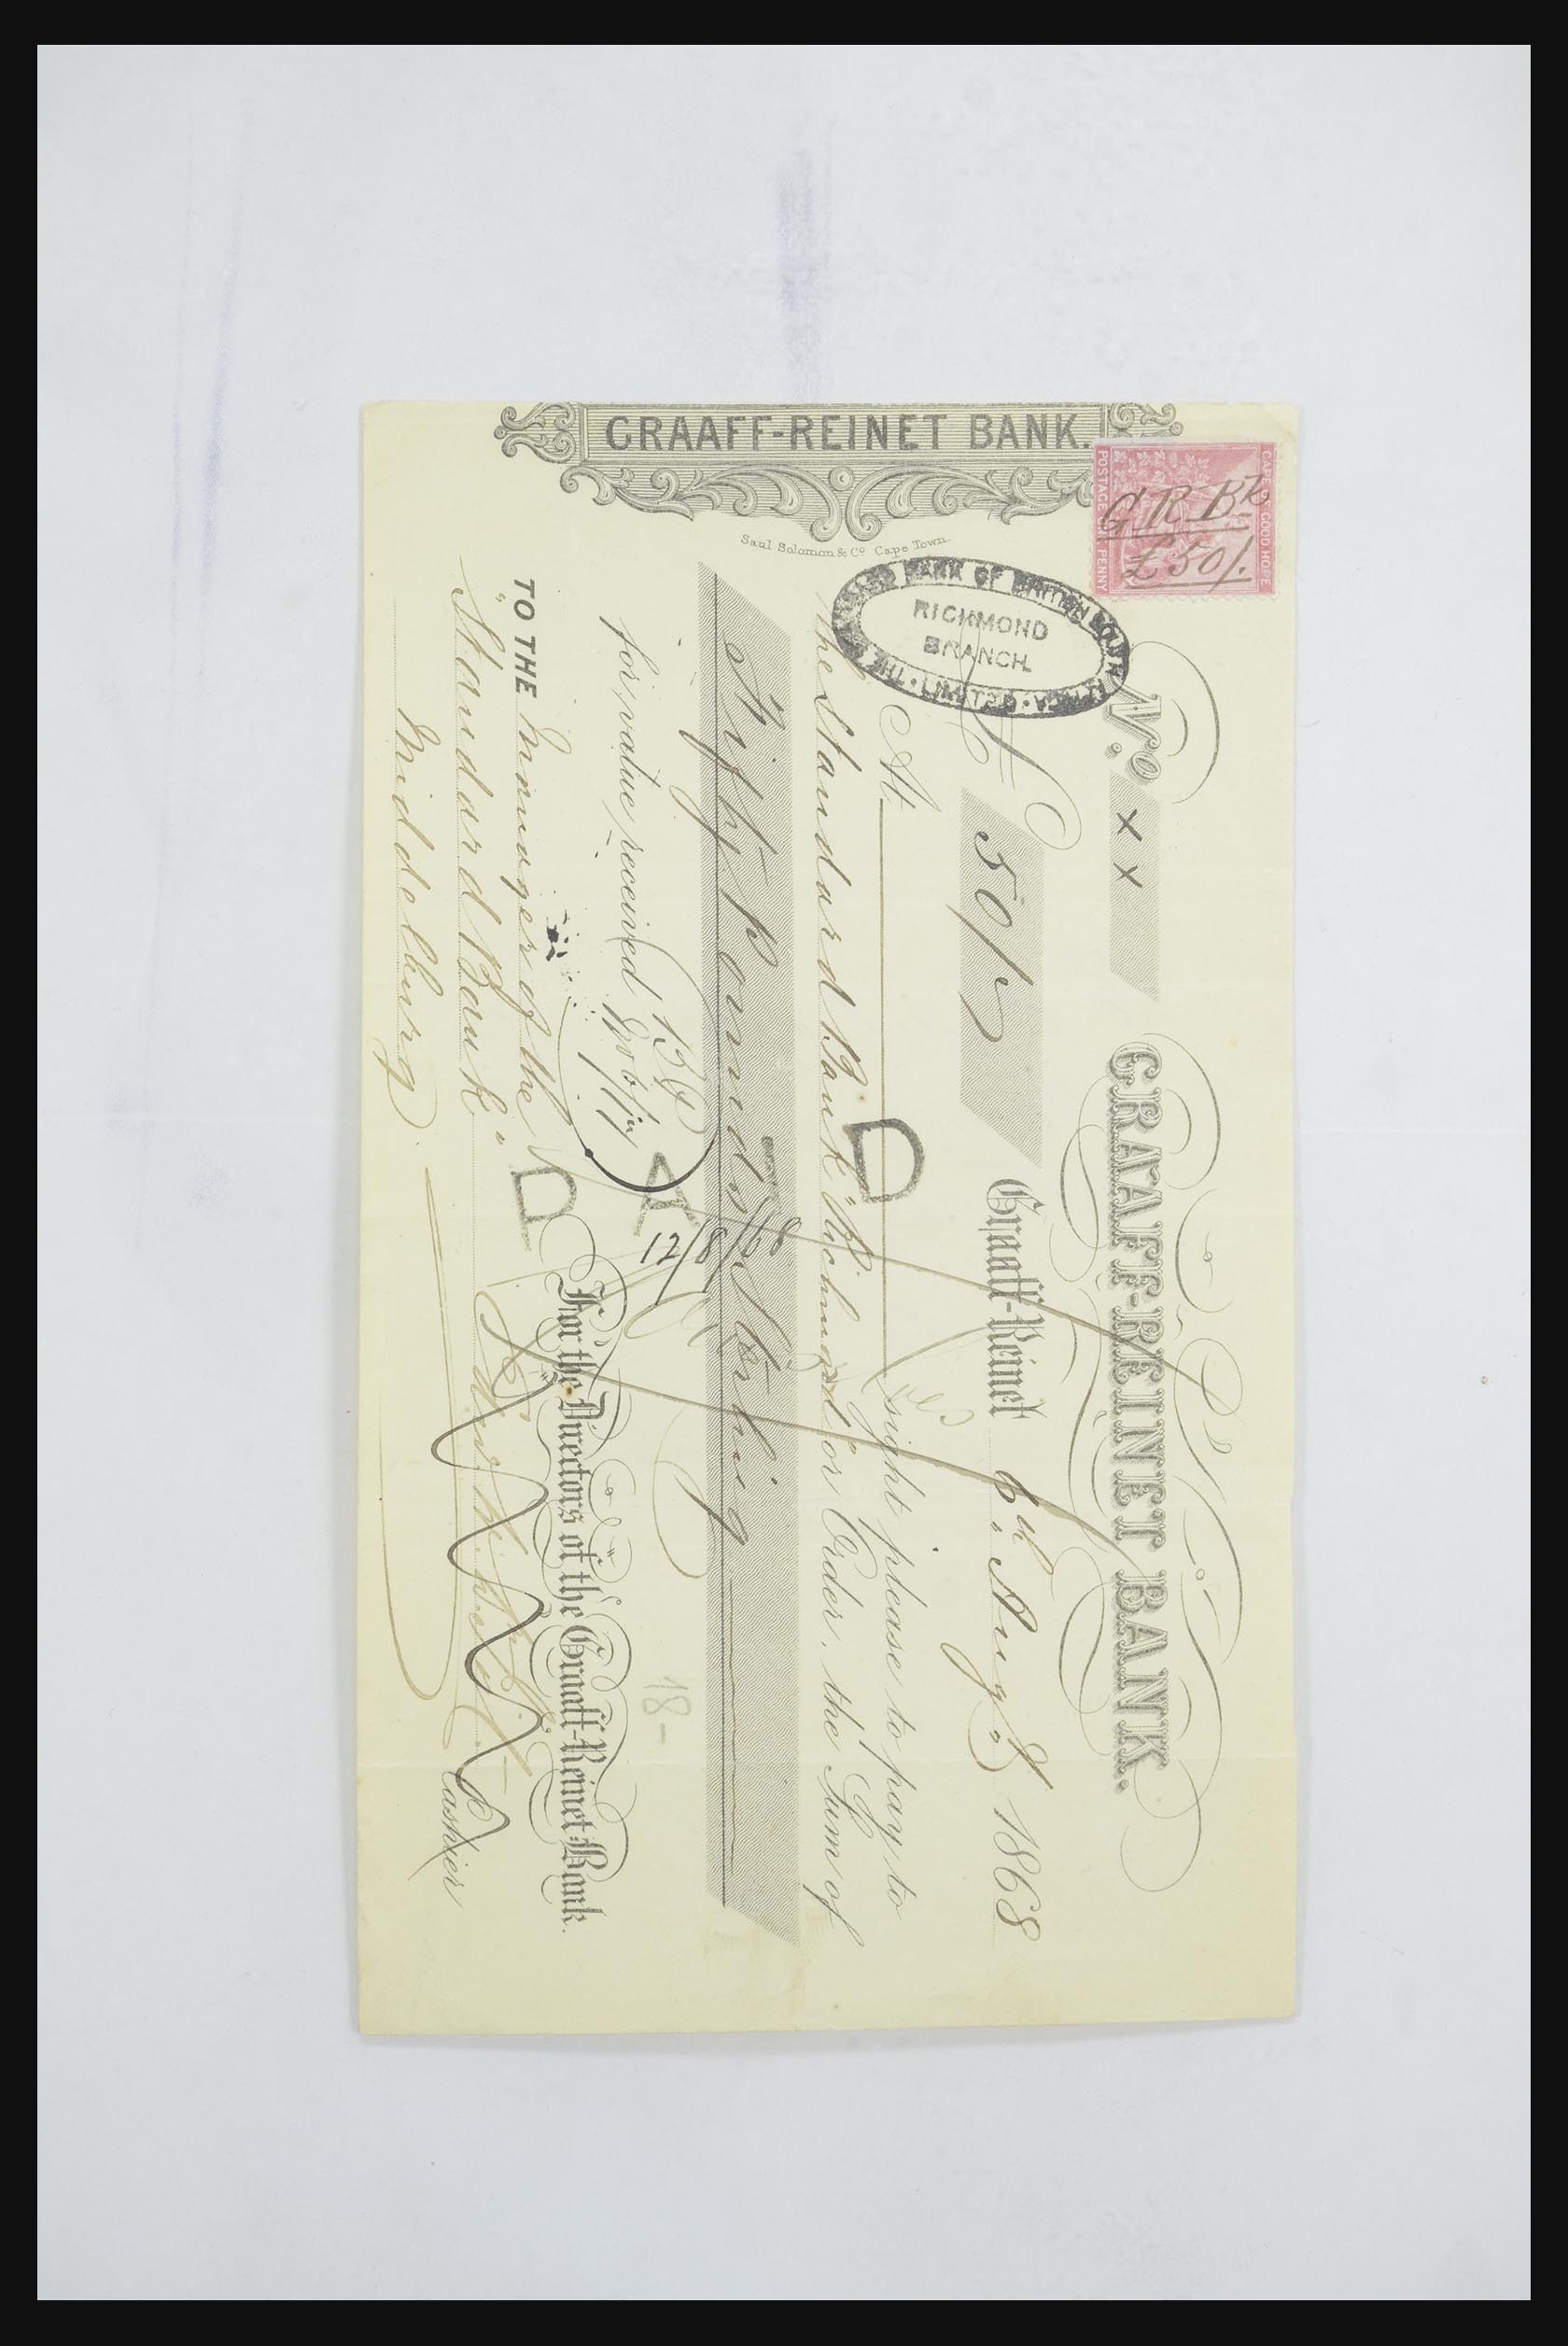 GRAAFF-REINET BANK.
Saul Solomon & Co. Cape Town.
CAPE OF GOOD HOPE
POSTAGE ONE PENNY
G R Bk
£50/.
BANK OF BRITISH SOUTH AFRICA LIMITED
RICHMOND
BRANCH
No. x x GRAAFF-REINET BANK.
£ 50/ Graaff-Reinet 6th Augt. 1868
At sight please to pay to
the Standard Bank Richmond or Order, the Sum of
Fifty Pounds Sterling
for value received
12/8
18-
TO THE Manager of the
"Standard Bank"
Middelburg
For the Directors of the Graaff-Reinet Bank.
Cashier
D
A
D